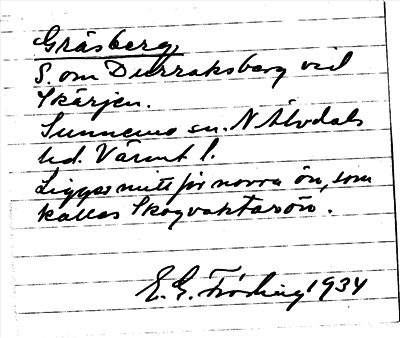 Gråsberg,
S. om Durraksberg vid
Skärjen.
Sunnemo sn. N Älvdals
hd. Värml l.
Ligger mitt för norra ön, som
kallas Skogvaktarön.
E. G. 1934